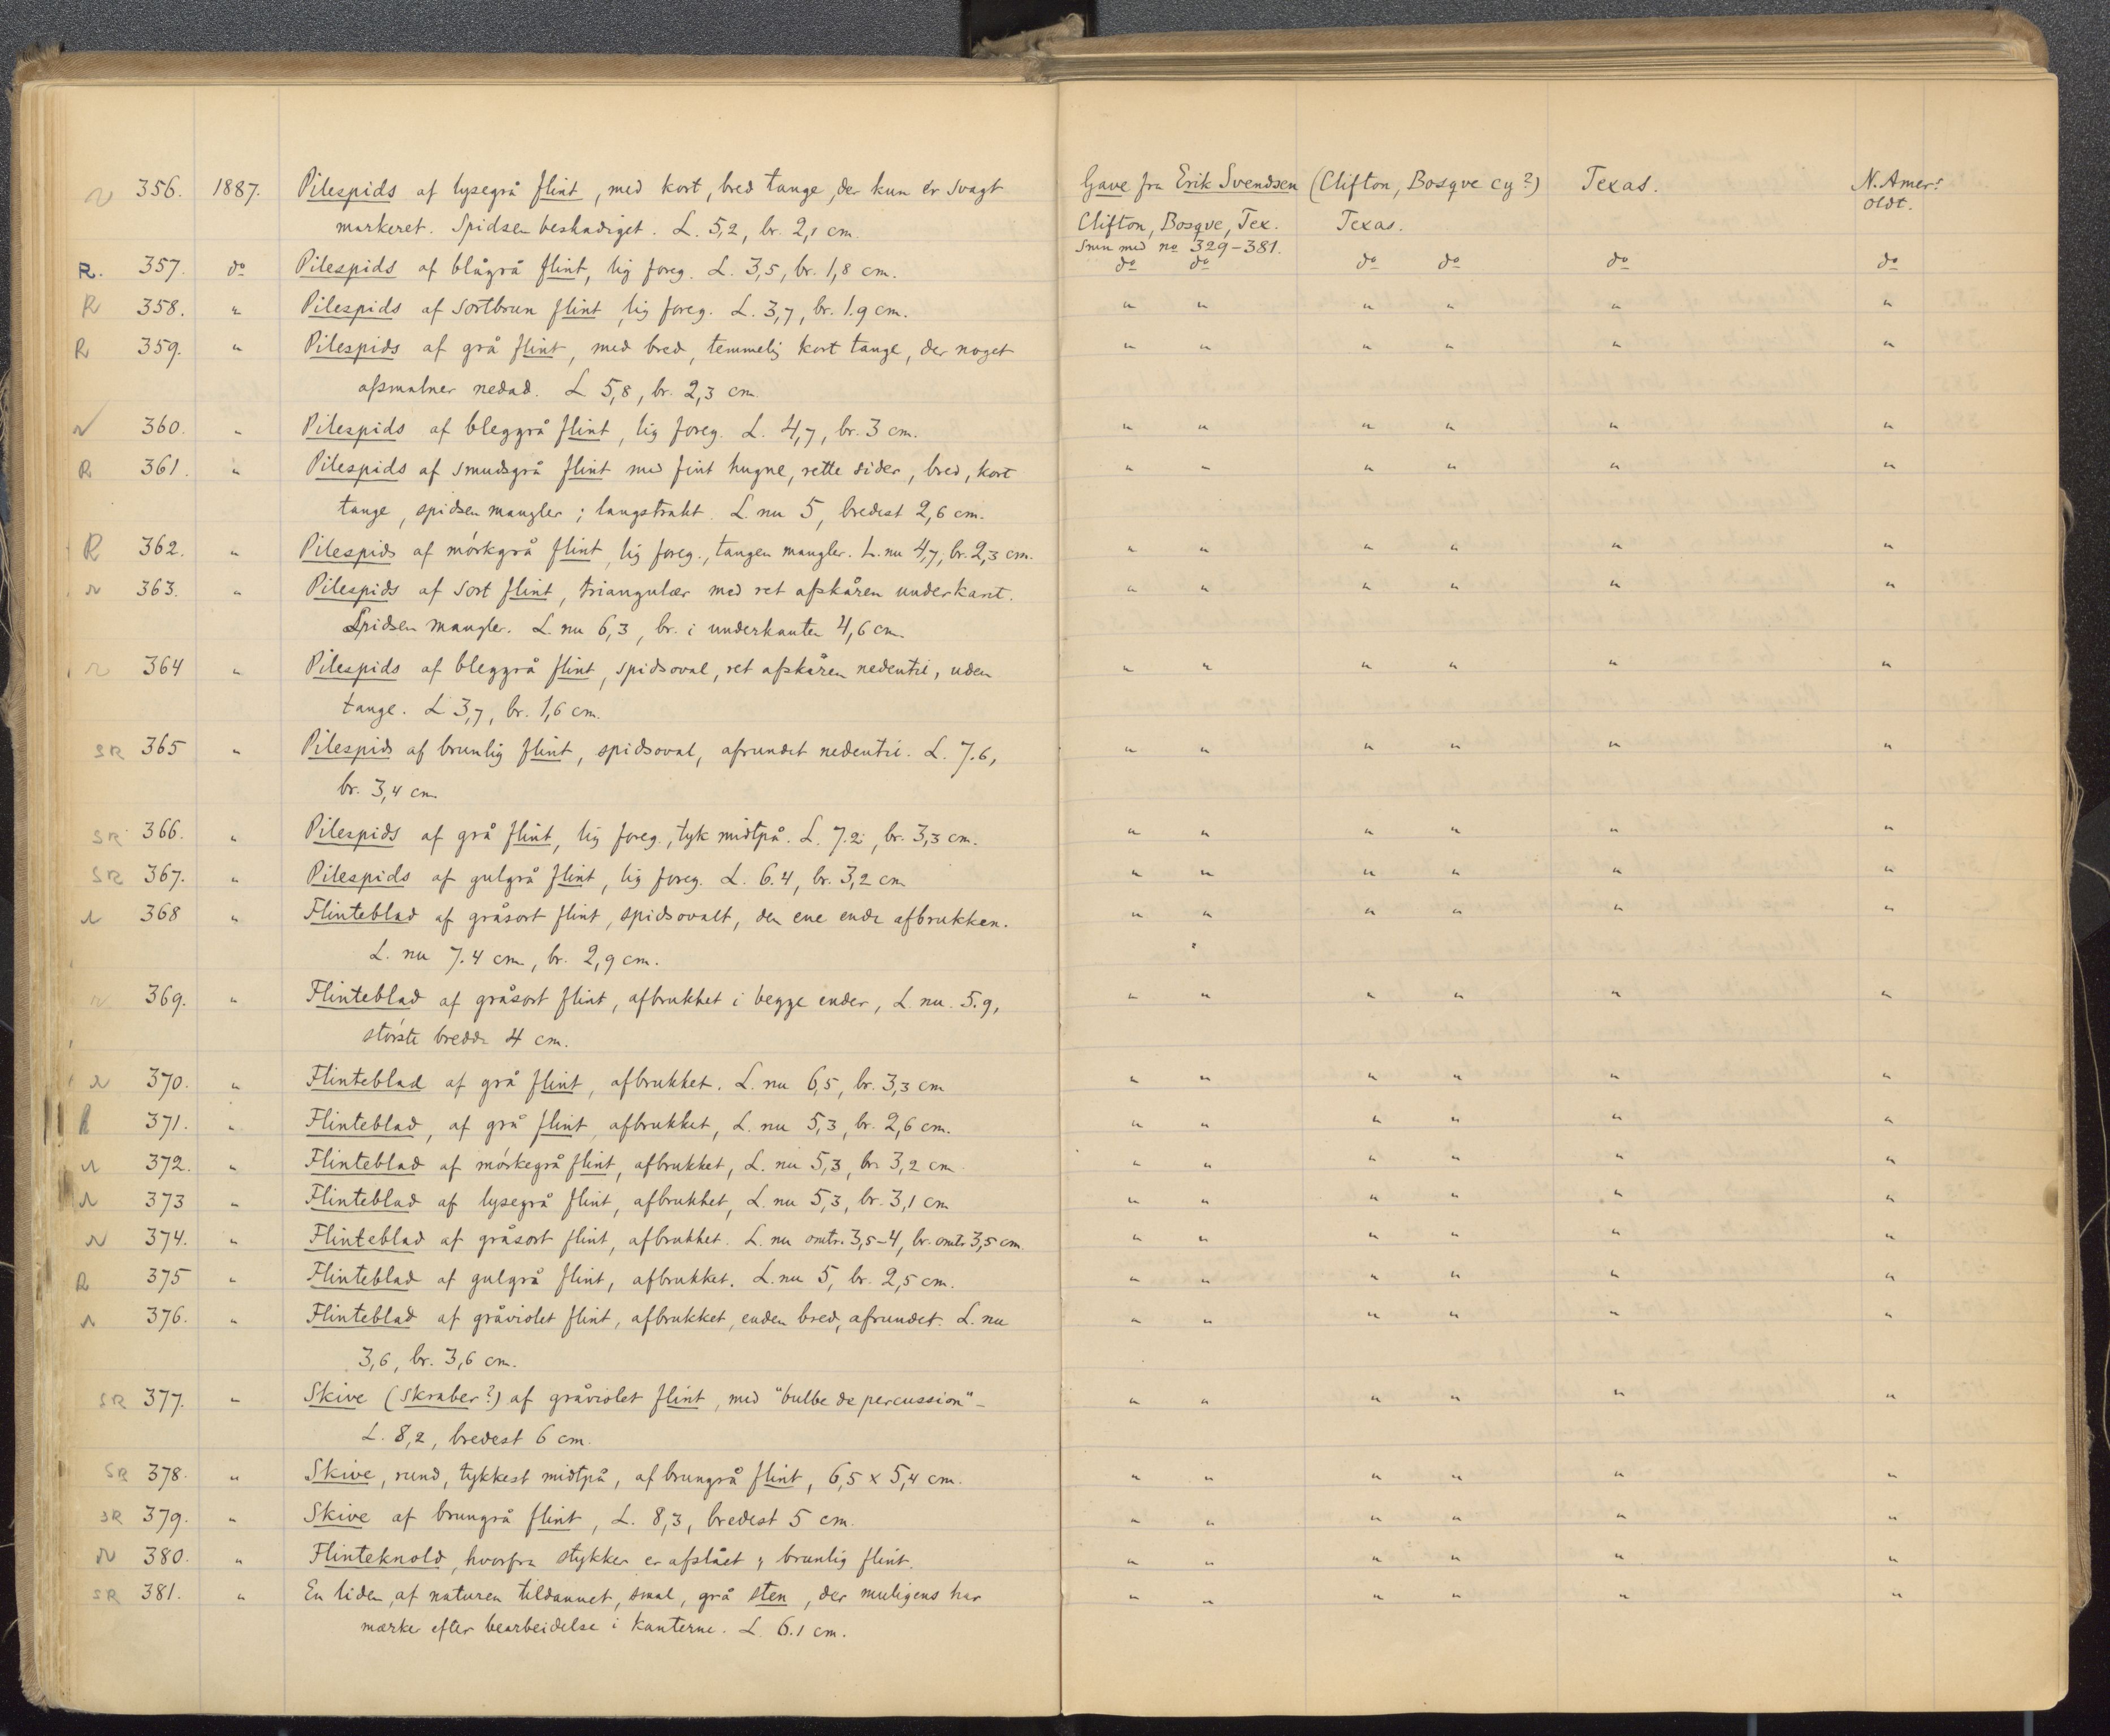 356. 1887. Pilespids af lysegrå flint, med kort, bred tange, der kun er svagt Gave fra Erik Svendsen (Clifton, Bosqve cy?) Texas. N. Amer.
markeret. Spidsen beskadiget. L. 5,2, br. 2,1 cm. Clifton, Bosqve, Tex. Texas. oldt.
smn med no 329-381.
R. 357. do Pilespids af blågrå flint, lig foreg. L. 3,5, br. 1,8 cm. do do do do do do
R 358. " Pilespids af sortbrun flint, lig foreg. L. 3,7, br. 1.9 cm. " " " " " "
R 359. " Pilespids af grå flint, med bred, temmelig kort tange, der noget " " " " " "
afsmalner nedad. L 5,8, br. 2,3 cm.
360. " Pilespids af bleggrå flint, lig foreg. L. 4,7, br. 3 cm. " " " " " "
R 361. " Pilespids af smudsgrå flint med fint hugne, rette sider, bred, kort " " " " " "
tange, spidsen mangler; langstrakt. L. nu 5, bredest 2,6 cm.
R 362. " Pilespids af mörkgrå flint, lig foreg., tangen mangler. L. nu 4,7, br. 2,3 cm. " " " " " "
363. " Pilespids af sort flint, triangulær med ret afskåren underkant. " " " " " "
Spidsen mangler. L. nu 6,3, br. i underkanten 4,6 cm.
364 " Pilespids af bleggrå flint, spidsoval, ret afskåren nedentil, uden " " " " " "
tange. L 3,7, br. 1,6 cm.
SR 365 " Pilespids af brunlig flint, spidsoval, afrundet nedentil. L. 7.6, " " " " " "
br. 3,4 cm
SR 366. " Pilespids af grå flint, lig foreg., tyk midtpå. L. 7.2, br. 3,3 cm. " " " " " "
SR 367. " Pilespids af gulgrå flint, lig foreg. L. 6.4, br. 3,2 cm " " " " " "
368 " Flinteblad af gråsort flint, spidsovalt, den ene ende afbrukken. " " " " " "
L. nu 7.4 cm, br. 2,9 cm.
369. " Flinteblad af gråsort flint, afbrukket i begge ender, L. nu. 5.9, " " " " " "
störste bredde 4 cm.
370. " Flinteblad af grå flint, afbrukket. L. nu 6,5, br. 3,3 cm " " " " " "
R 371. " Flinteblad, af grå flint, afbrukket, L. nu 5,3, br. 2,6 cm. " " " " " "
372. " Flinteblad af mörkegrå flint, afbrukket, L. nu 5,3, br. 3,2 cm " " " " " "
373 " Flinteblad af lysegrå flint, afbrukket, L. nu 5,3, br. 3,1 cm " " " " " "
374. " Flinteblad af gråsort flint, afbrukket. L. nu omtr. 3,5-4, br. omtr 3,5 cm. " " " " " "
R 375 " Flinteblad af gulgrå flint, afbrukket. L. nu 5, br. 2,5 cm. " " " " " "
376. " Flinteblad af gråviolet flint, afbrukket, enden bred, afrundet. L. nu " " " " " "
3,6, br. 3,6 cm.
SR 377. " Skive (skraber?) af gråviolet flint, med "bulbe de percussion"- " " " " " "
L. 8,2, bredest 6 cm.
SR 378. " Skive, rund, tykkest midtpå, af brungrå flint, 6,5 x 5,4 cm. " " " " " "
SR 379. " Skive af brungrå flint, L. 8,3, bredest 5 cm. " " " " " "
380. " Flinteknold, hvorfra stykker er afslået; brunlig flint. " " " " " "
SR 381. " En liden, af naturen tildannet, smal, grå sten, der muligens har " " " " " "
mærker efter bearbeidelse i kanterne. L. 6.1 cm.